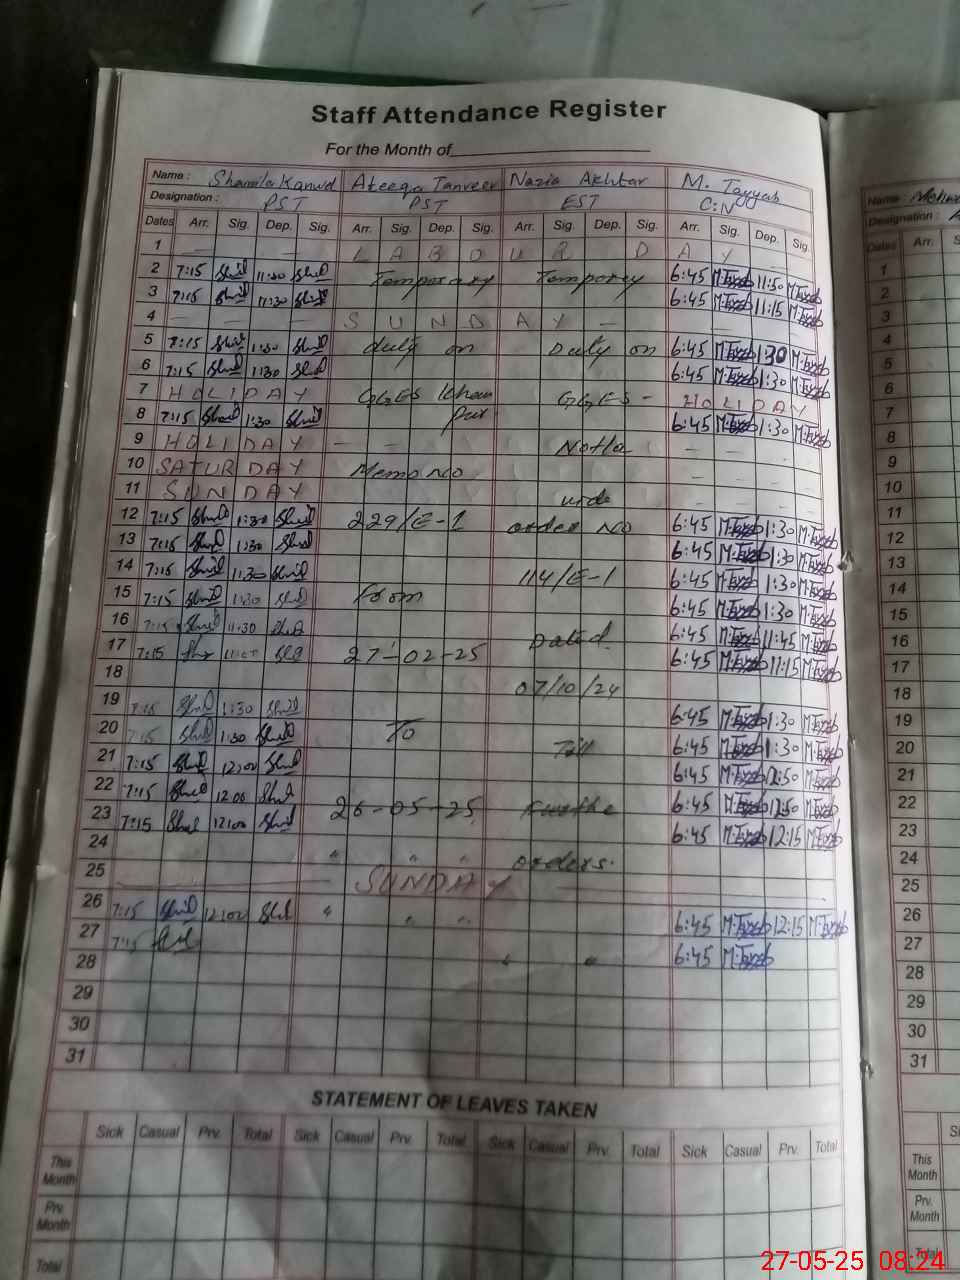 Staff Attendance Register
For the Month of
Name : Shamila Kanwal Ateeqa Tanveer Nazia Akhtar M. Tayyab
Designation : PST PST EST C:N
Dates Arr. Sig. Dep. Sig. Arr. Sig. Dep. Sig. Arr. Sig. Dep. Sig. Arr. Sig. Dep. Sig.
1 — — — L A B O U R D A Y
2 7:15 11:30 Temporary Temporey 6:45 M.Tayyab 11:30 M.Tayyab
3 7:15 11:30 6:45 M.Tayyab 11:15 M.Tayyab
4 — — — — S U N D A Y —
5 7:15 1:30 duty on Duty on 6:45 M.Tayyab 1:30 M.Tayyab
6 7:15 1:30 6:45 M.Tayyab 1:30 M.Tayyab
7 HOLIDAY GGES Khan GGES - HOLIDAY
8 7:15 1:30 Pur 6:45 M.Tayyab 1:30 M.Tayyab
9 HOLIDAY — — — Notla — — —
10 SATURDAY Memo No — — —
11 SUNDAY — — —
12 7:15 1:30 229/E-1 order No 6:45 M.Tayyab 1:30 M.Tayyab
13 7:15 1:30 6:45 M.Tayyab 1:30 M.Tayyab
14 7:15 11:30 114/E-1 6:45 M.Tayyab 1:30 M.Tayyab
15 7:15 1:30 from 6:45 M.Tayyab 1:30 M.Tayyab
16 7:15 11:30 Dated. 6:45 M.Tayyab 11:45 M.Tayyab
17 7:15 27-02-25 6:45 M.Tayyab 11:15 M.Tayyab
18 07/10/24
19 7:15 1:30 6:45 M.Tayyab 1:30 M.Tayyab
20 7:15 1:30 To Till 6:45 M.Tayyab 1:30 M.Tayyab
21 7:15 12:00 6:45 M.Tayyab 12:50 M.Tayyab
22 7:15 12:00 6:45 M.Tayyab 12:50 M.Tayyab
23 7:15 12:00 26-05-25 6:45 M.Tayyab 12:15 M.Tayyab
24 " " " orders.
25 SUNDAY
26 7:15 12:00 " " " 6:45 M.Tayyab 12:15 M.Tayyab
27 7:15 6:45 M.Tayyab
28 " "
29
30
31
STATEMENT OF LEAVES TAKEN
Sick Casual Prv. Total Sick Casual Prv. Total Sick Casual Prv. Total Sick Casual Prv. Total
This Month
Prv. Month
Total
Name :
Designation :
Dates Arr.
1
2
3
4
5
6
7
8
9
10
11
12
13
14
15
16
17
18
19
20
21
22
23
24
25
26
27
28
29
30
31
This Month
Prv. Month
Total
27-05-25 08:24